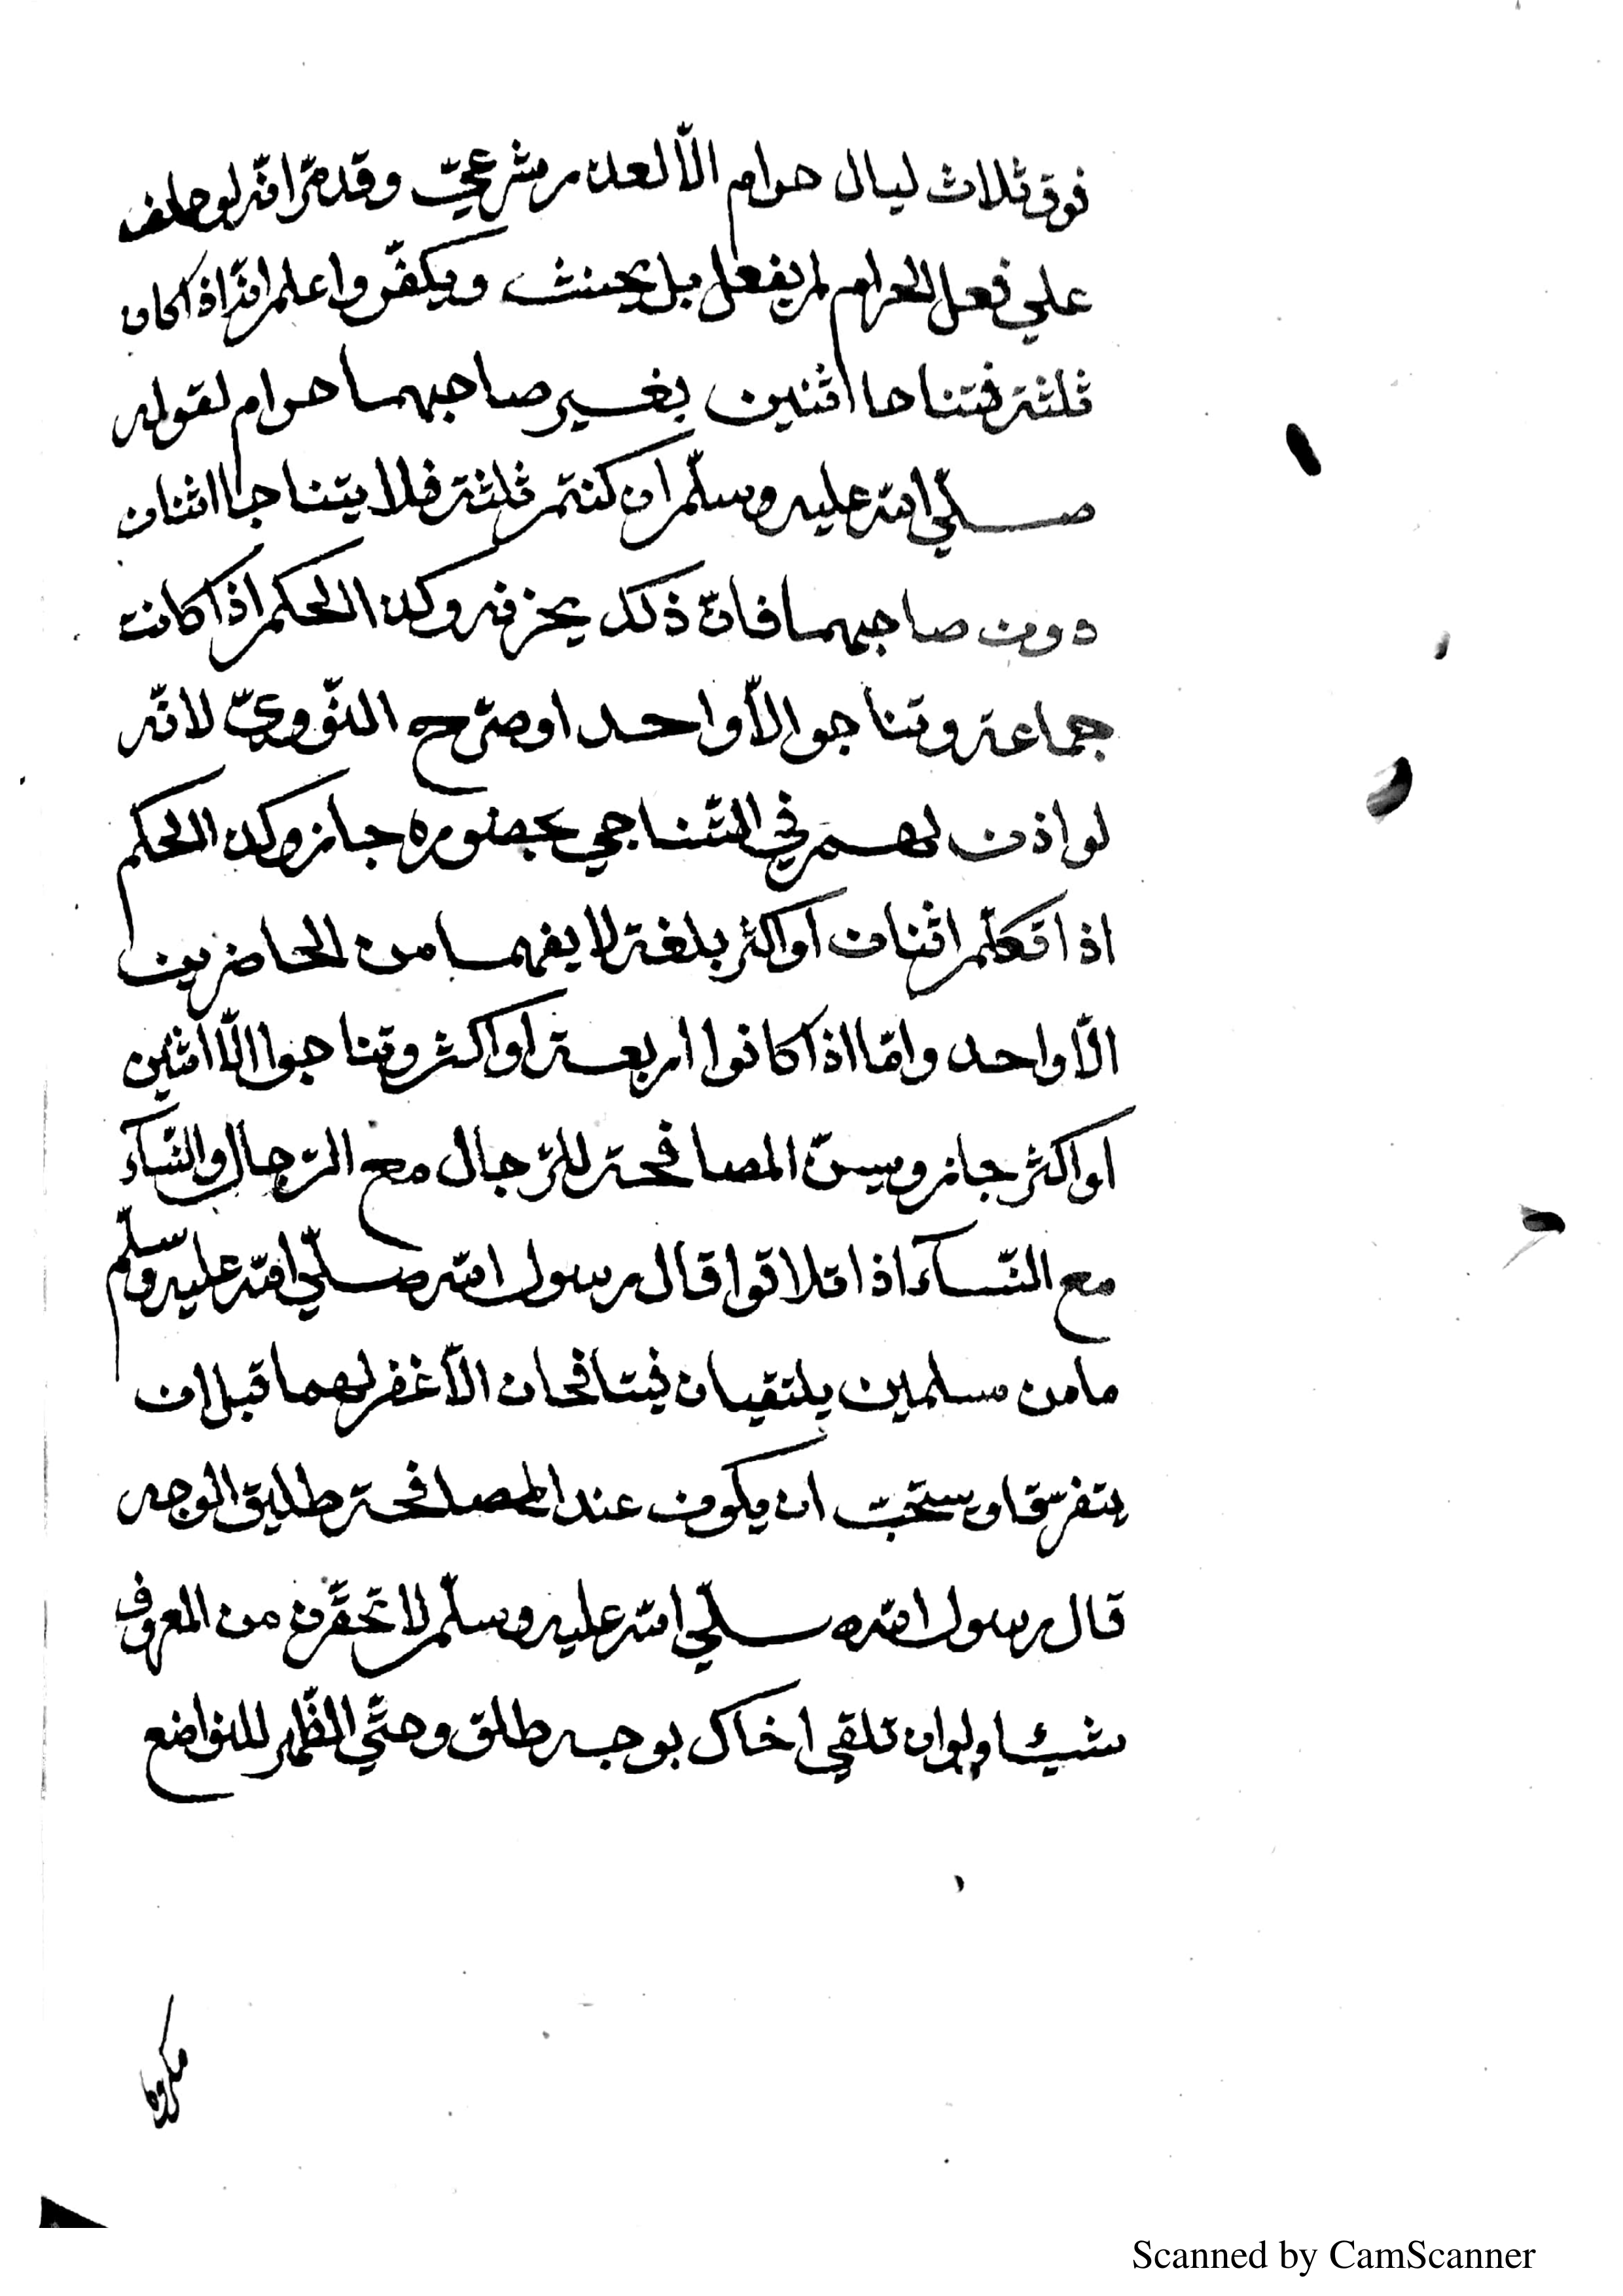 فوق ثلاث ليال حرام الّا لعذر شرعيّ وقد مرّ انّه لو حلف
علي فعل الحرام لم يفعل بل يحنث ويكفّر واعلم انّه اذا كان
ثلثة فتناجا اثنين بغير صاحبهما حرام لقوله
صلّي الله عليه وسلّم ان كنتم ثلثة فلا يتناجا اثنان
دون صاحبهما فانّ ذلك يحزنه وكذا الحكم اذا كانت
جماعة وتناجوا الّا واحدا وصرّح النّوويّ لانّه
لو اذن لهم في التّناجي بحضوره جاز وكذا الحكم
اذا تكلّم اثنان او اكثر بلغة لا يفهما من الحاضرين
الّا واحد وامّا اذا كانوا اربعة او اكثر وتناجوا الّا اثنين
او اكثر جاز ويسنّ المصافحة للرّجال مع الرّجال والنّسآء
مع النّسآء اذا تلاقوا قال رسول الله صلّي الله عليه وسلّم
ما من مسلمين يلتقيان فيتافحان الّا غفر لهما قبل ان
يتفرّقا ويستحبّ ان يكون عند المصافحة طليق الوجه
قال رسول الله صلّي الله عليه وسلّم لا تحقّرن من المعروف
شيئا ولو ان تلقي اخاك بوجه طلق وحنّي الظّهر للتواضع
Scanned by CamScanner